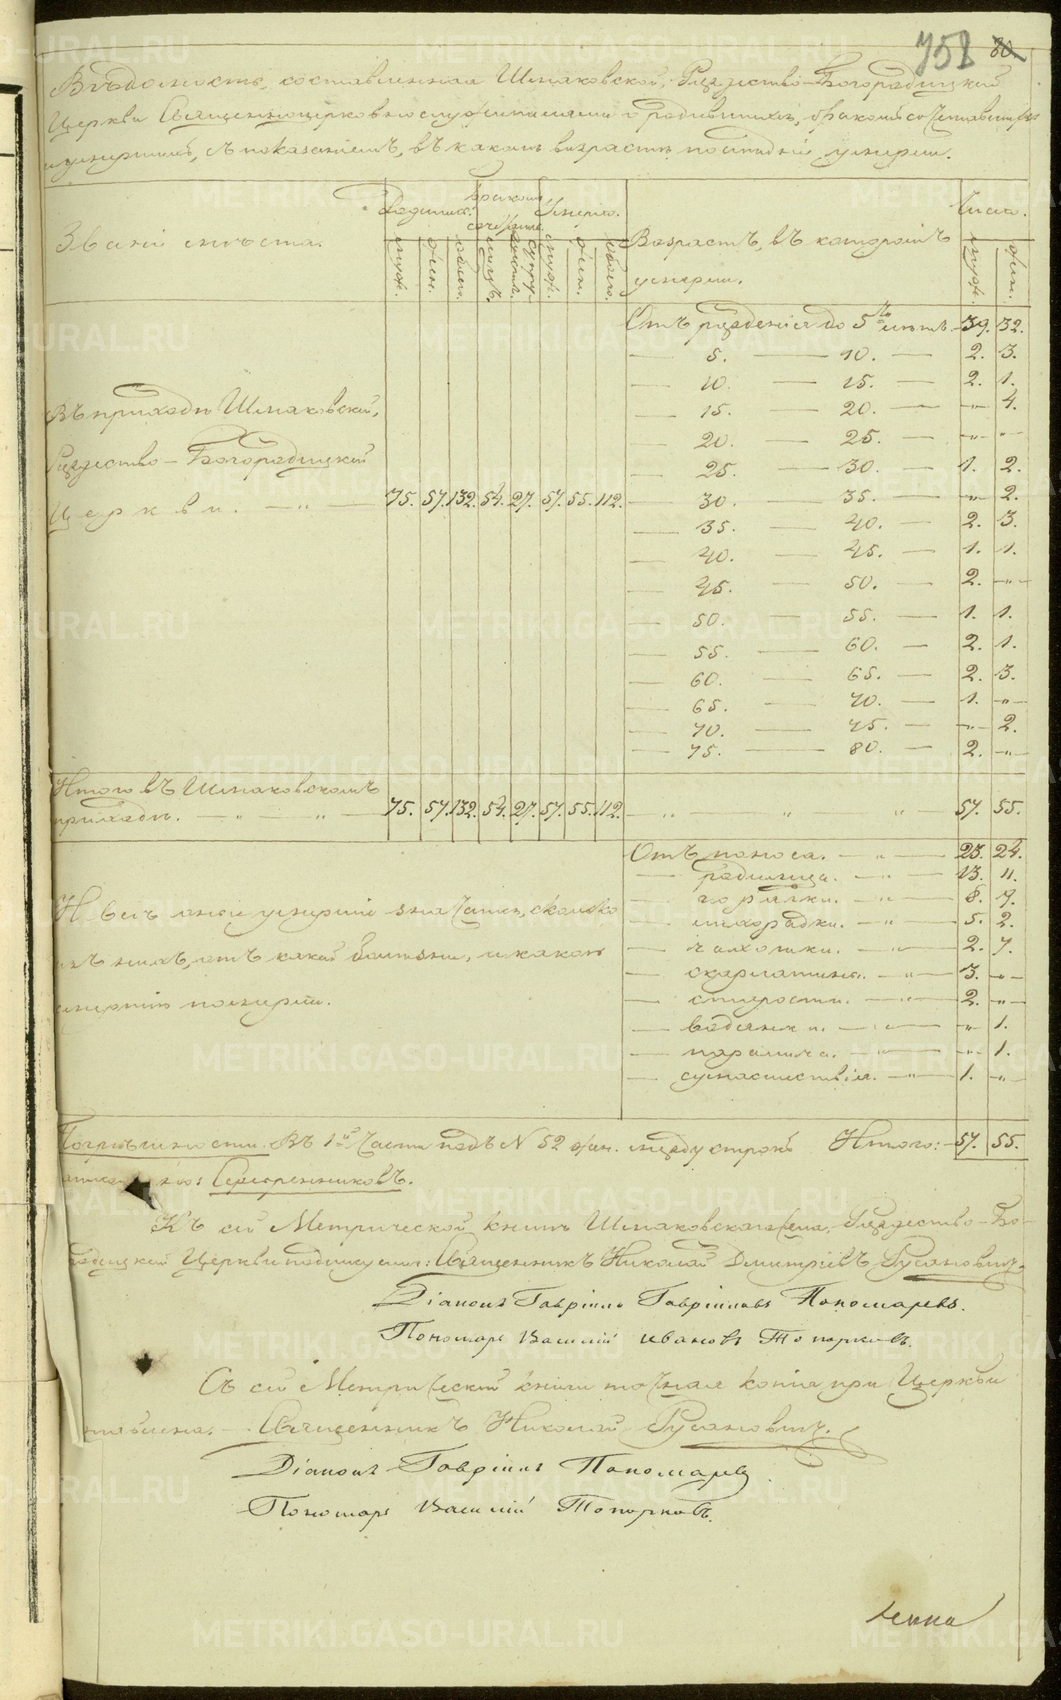 758 80
Вѣдомость, составленная Шмаковской, Рождество-Богородицкой
Церкви Священноцерковнослужителями о родившихся, бракомъ сочетавшихся
и умершихъ, съ показаніемъ, въ какомъ возрастѣ послѣдніе умерли.
Званіе мѣста.
Родивших.
Бракомъ сочетан.
Умерло.
Возрастъ, въ которомъ умерли.
Число.
муж. жен. обоего. муж. жен. обоего. муж. жен.
Отъ рожденія до 5ти лѣтъ 39. 32.
— 5. — 10. — 2. 3.
— 10. — 15. — 2. 1.
Въ приходѣ Шмаковской,
— 15. — 20. — „ 4.
— 20. — 25. — „ „
Рождество-Богородицкой
— 25. — 30. — 1. 2.
Церкви. — „ — 75. 57. 132. 54. 27. 57. 55. 112.
— 30. — 35. — „ 2.
— 35. — 40. — 2. 3.
— 40. — 45. — 1. 1.
— 45. — 50. — 2. „
— 50. — 55. — 1. 1.
— 55. — 60. — 2. 1.
— 60. — 65. — 2. 3.
— 65. — 70. — 1. „
— 70. — 75. — „ 2.
— 75. — 80. — 2. „
Итого въ Шмаковскомъ
приходѣ. — „ — „ — 75. 57. 132. 54. 27. 57. 55. 112. — „ — „ — „ 57. 55.
Отъ поноса. — „ — 23. 24.
— родимца. — „ — 13. 11.
— горячки. — „ — 8. 7.
И всѣ оные умершіе значатся, сколько
— лихорадки. — „ — 5. 2.
изъ нихъ, отъ какой болѣзни, и какою
— чахотки. — „ — 2. 7.
— скарлатины. — „ — 3. „
смертію померли.
— старости. — „ — 2. „
— водянки. — „ — „ 1.
— паралича. — „ — „ 1.
— сумасшествія. — „ — 1. „
Погрѣшности. Въ 1й части подъ N 52 жен. между строкъ Итого: 57. 55.
Серебренниковъ.
Къ сей Метрической книгѣ Шмаковскаго села, Рождество-Бо-
родицкой Церкви подписуемся: Священникъ Николай Димитріевъ Русановичъ.
Діаконъ Гавріилъ Гавріиловъ Пономаревъ.
Пономарь Василій Ивановъ Топорковъ.
Съ сей Метрической книги точная копія при Церкви
оставлена. Священникъ Николай Русановичъ.
Діаконъ Гавріилъ Пономаревъ.
Пономарь Василій Топорковъ.
METRIKI.GASO-URAL.RU